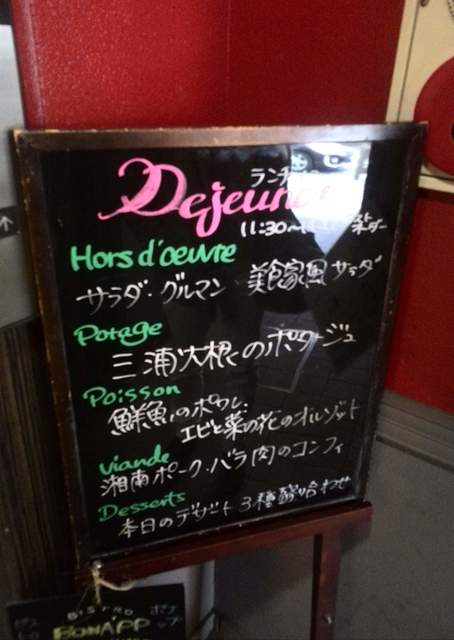 Dejeuner
ランチ
11:30〜
Hors d'œuvre
サラダ・グルマン 美食家風サラダ
Potage
三浦大根のポタージュ
Poisson
鮮魚のポワレ
エビと菜の花のオルゾット
Viande
湘南ポーク・バラ肉のコンフィ
Desserts
本日のデザート3種盛り合わせ
BISTRO
BONA'PP